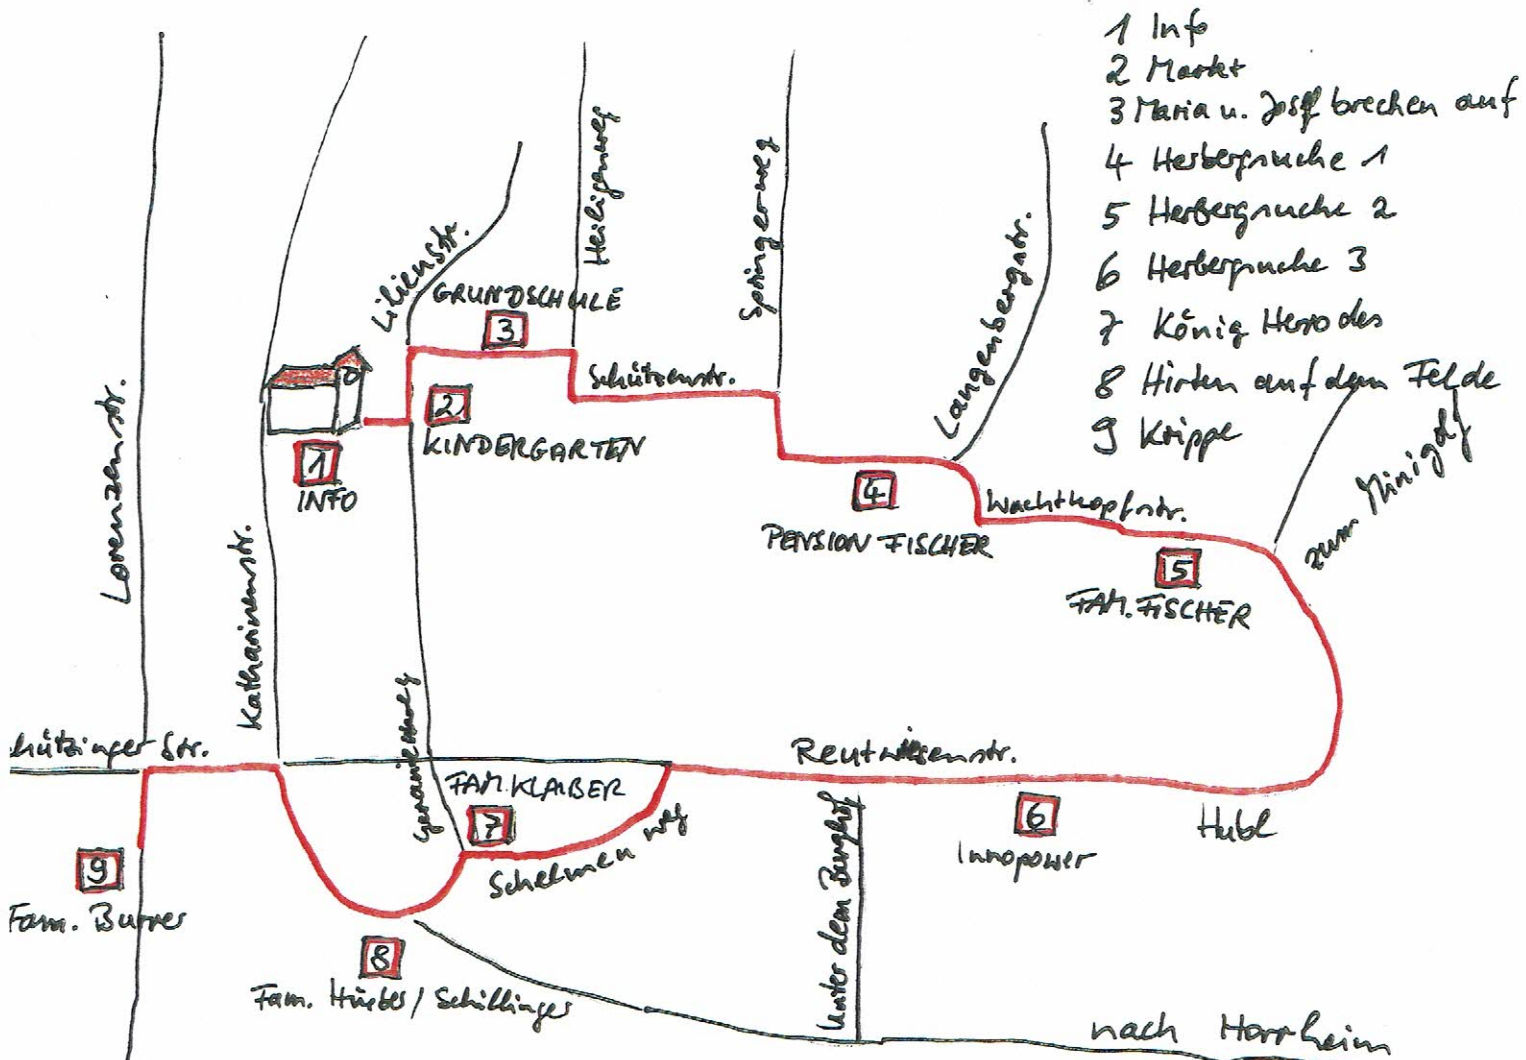 1 Info
2 Markt
3 Maria u. Josef brechen auf
4 Herbergsuche 1
5 Herbergsuche 2
6 Herbergsuche 3
7 König Herodes
8 Hirten auf dem Felde
9 Krippe
Lorenzenstr.
Katharinenstr.
Lilienstr.
Heiligenweg
Springerweg
Langenbergstr.
zum Minigolf
GRUNDSCHULE
3
Schützenstr.
2
KINDERGARTEN
1
INFO
4
PENSION FISCHER
Wachtkopfstr.
5
FAM. FISCHER
hützinger Str.
Geranienweg
Reutwiesenstr.
FAM. KLAIBER
7
Schelmenweg
6
Innopower
Hubl
Unter dem Burghof
9
Fam. Burrer
8
Fam. / Schillinger
nach Horrheim